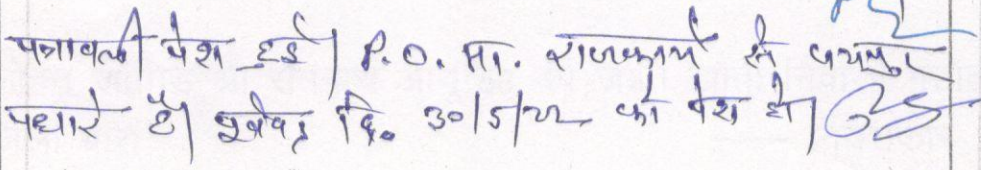 पत्रावली पेश हुई। P.O. सा. राजकार्य से जयपुर
पधारे है। पूर्ववत् दि० 30/5/22 को पेश हो।